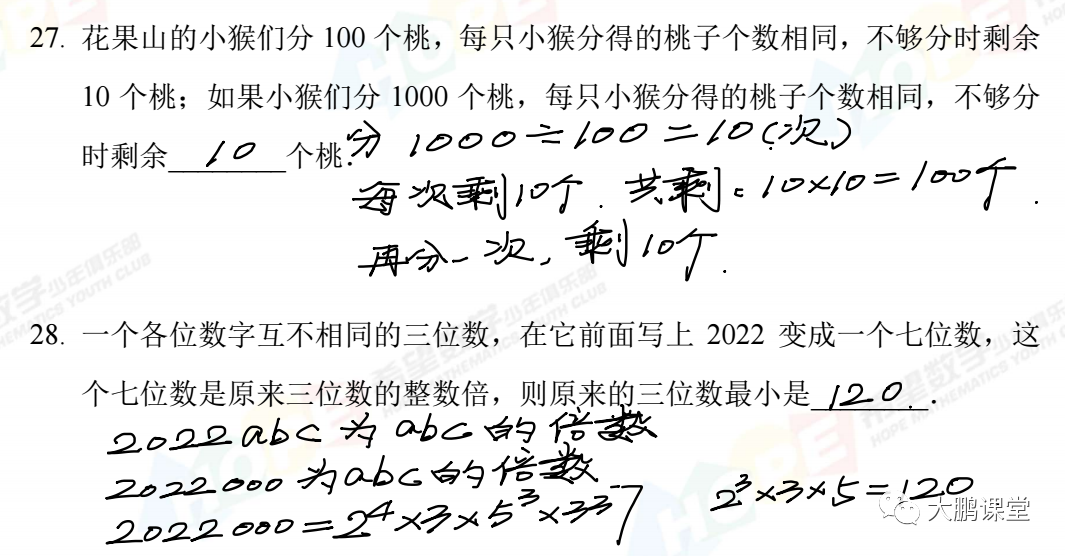 27. 花果山的小猴们分 100 个桃，每只小猴分得的桃子个数相同，不够分时剩余
10 个桃；如果小猴们分 1000 个桃，每只小猴分得的桃子个数相同，不够分
时剩余 10 个桃.
分 1000÷100=10(次)
每次剩10个. 共剩: 10×10=100个.
再分一次, 剩10个.
28. 一个各位数字互不相同的三位数，在它前面写上 2022 变成一个七位数，这
个七位数是原来三位数的整数倍，则原来的三位数最小是 120.
2022abc 为 abc 的倍数
2022000 为 abc 的倍数
2022000=2⁴×3×5³×337
2³×3×5=120
大鹏课堂